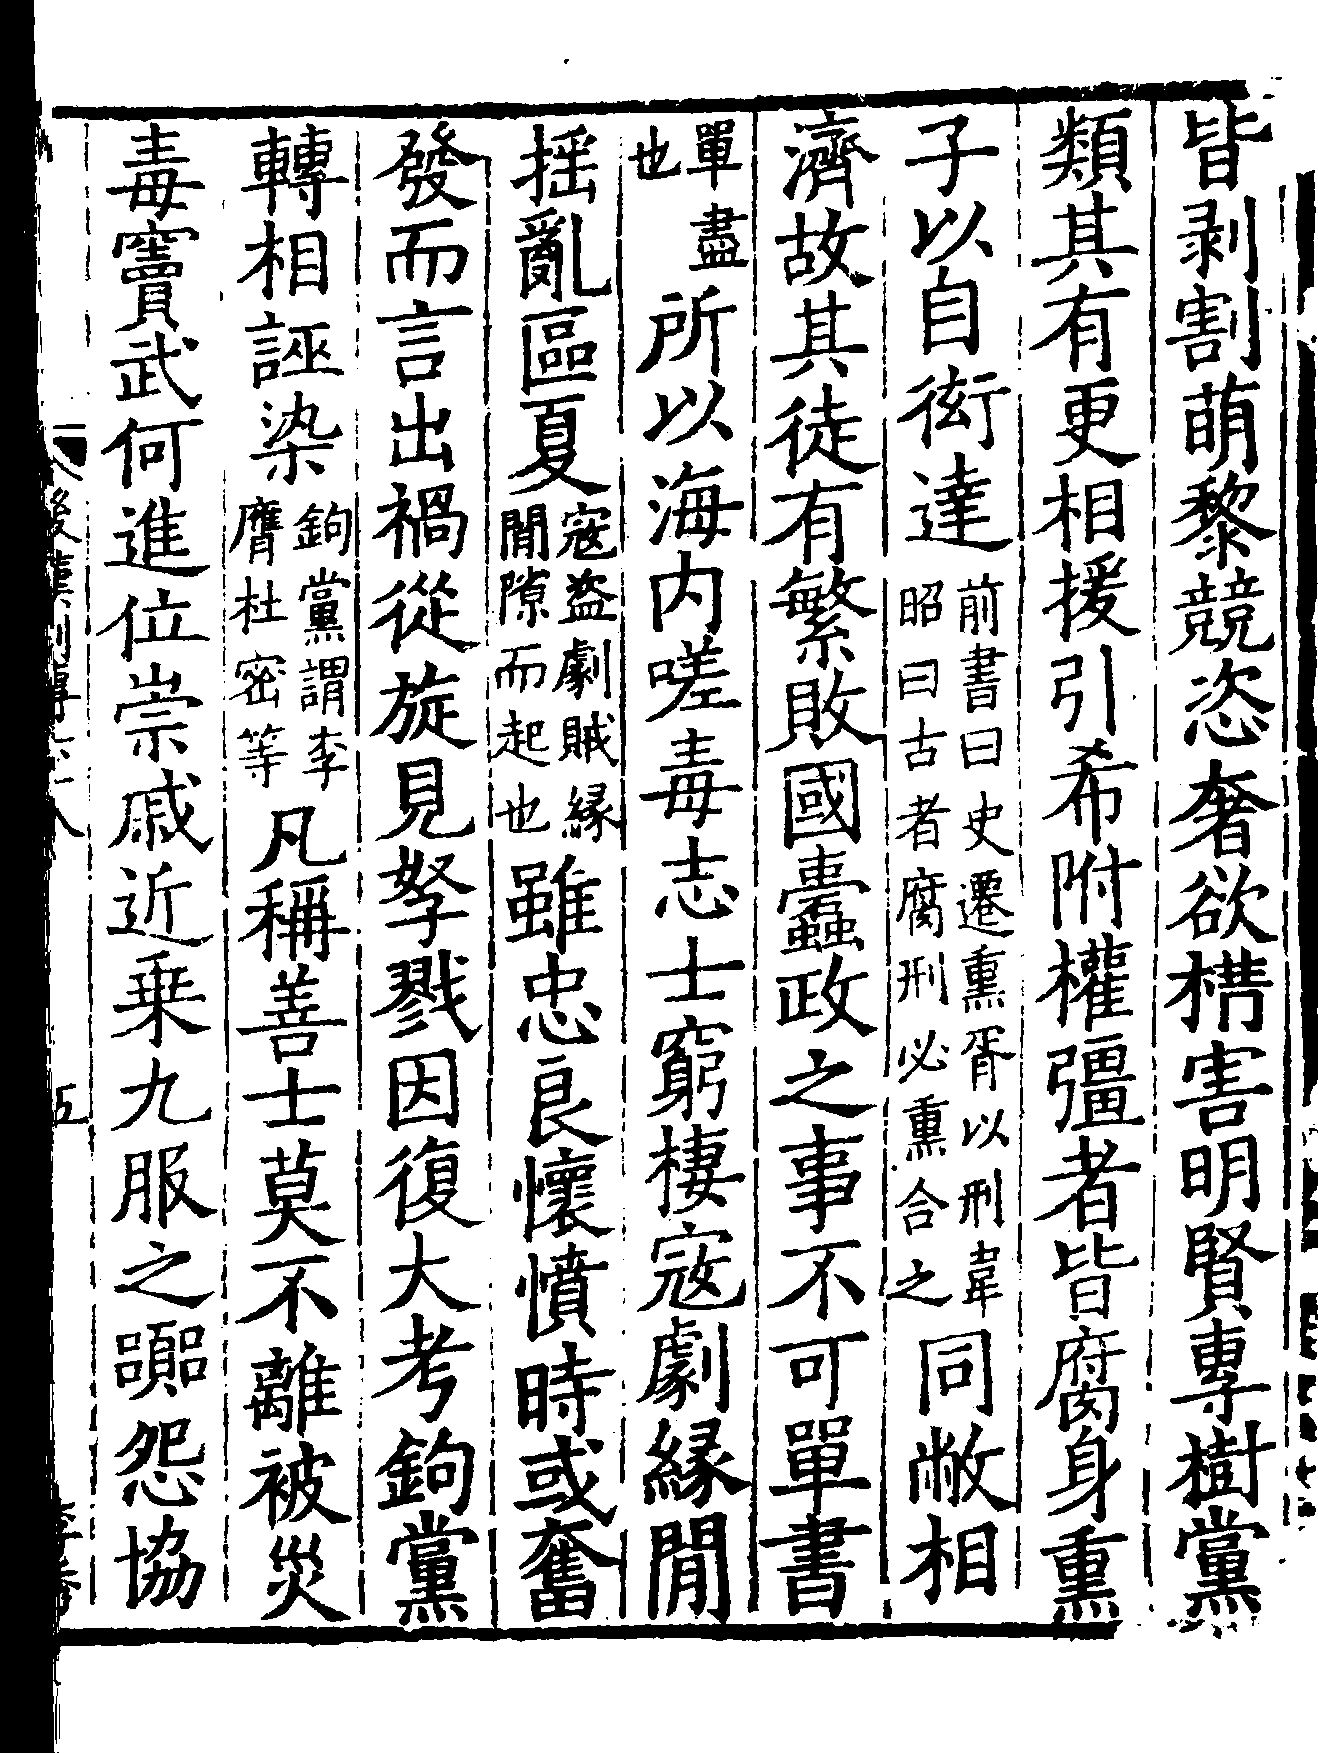 皆剥割萌黎競恣奢欲構害明賢專樹黨
類其有更相援引希附權彊者皆腐身熏
子以自衒達前書曰史遷熏胥以刑韋
昭曰古者腐刑必熏合之同敝相
濟故其徒有繁敗國蠹政之事不可單書
單盡
也所以海内嗟毒志士窮棲寇劇緣閒
揺亂區夏寇盗劇賊緣
閒隙而起也雖忠良懷憤時或奮
發而言出禍從旋見孥戮因復大考鉤黨
轉相誣染鉤黨謂李
膺杜密等凡稱善士莫不離被災
毒竇武何進位崇戚近乗九服之嚻怨協
後漢列傳六十八
五